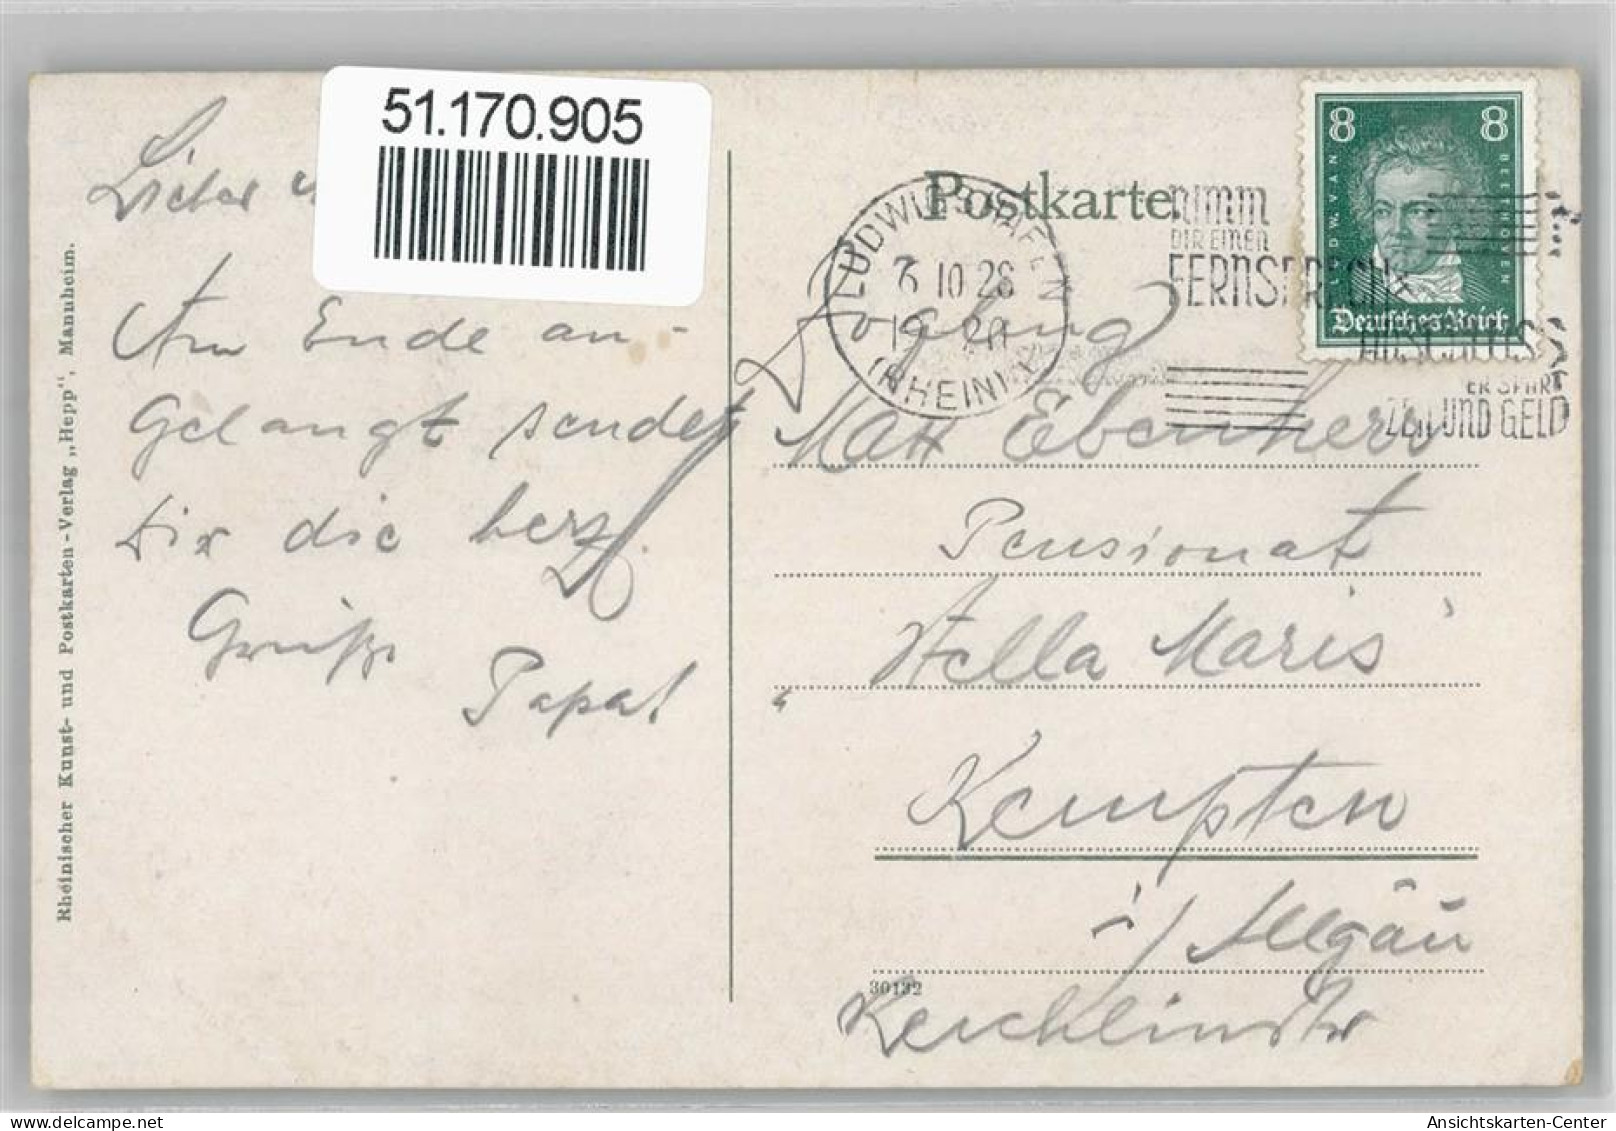 51.170.905
Lieber
Am Ende an-
gelangt sendet
Dir die herzl.
Grüße
Papa!
Rheinischer Kunst- und Postkarten-Verlag „Hepp“, Mannheim.
Postkarte
LUDWIGSHAFEN
6 10 28
(RHEIN)
NIMM
DIR EINEN
FERNSPRECH
ANSCHLUSS
ER SPART
ZEIT UND GELD
8 8
LUDW. VAN BEETHOVEN
Deutsches Reich
Zögling
Max Ebenherr
Pensionat
„Stella Maris“
Kempten
i/Allgäu
30132
Ansichtskarten-Center